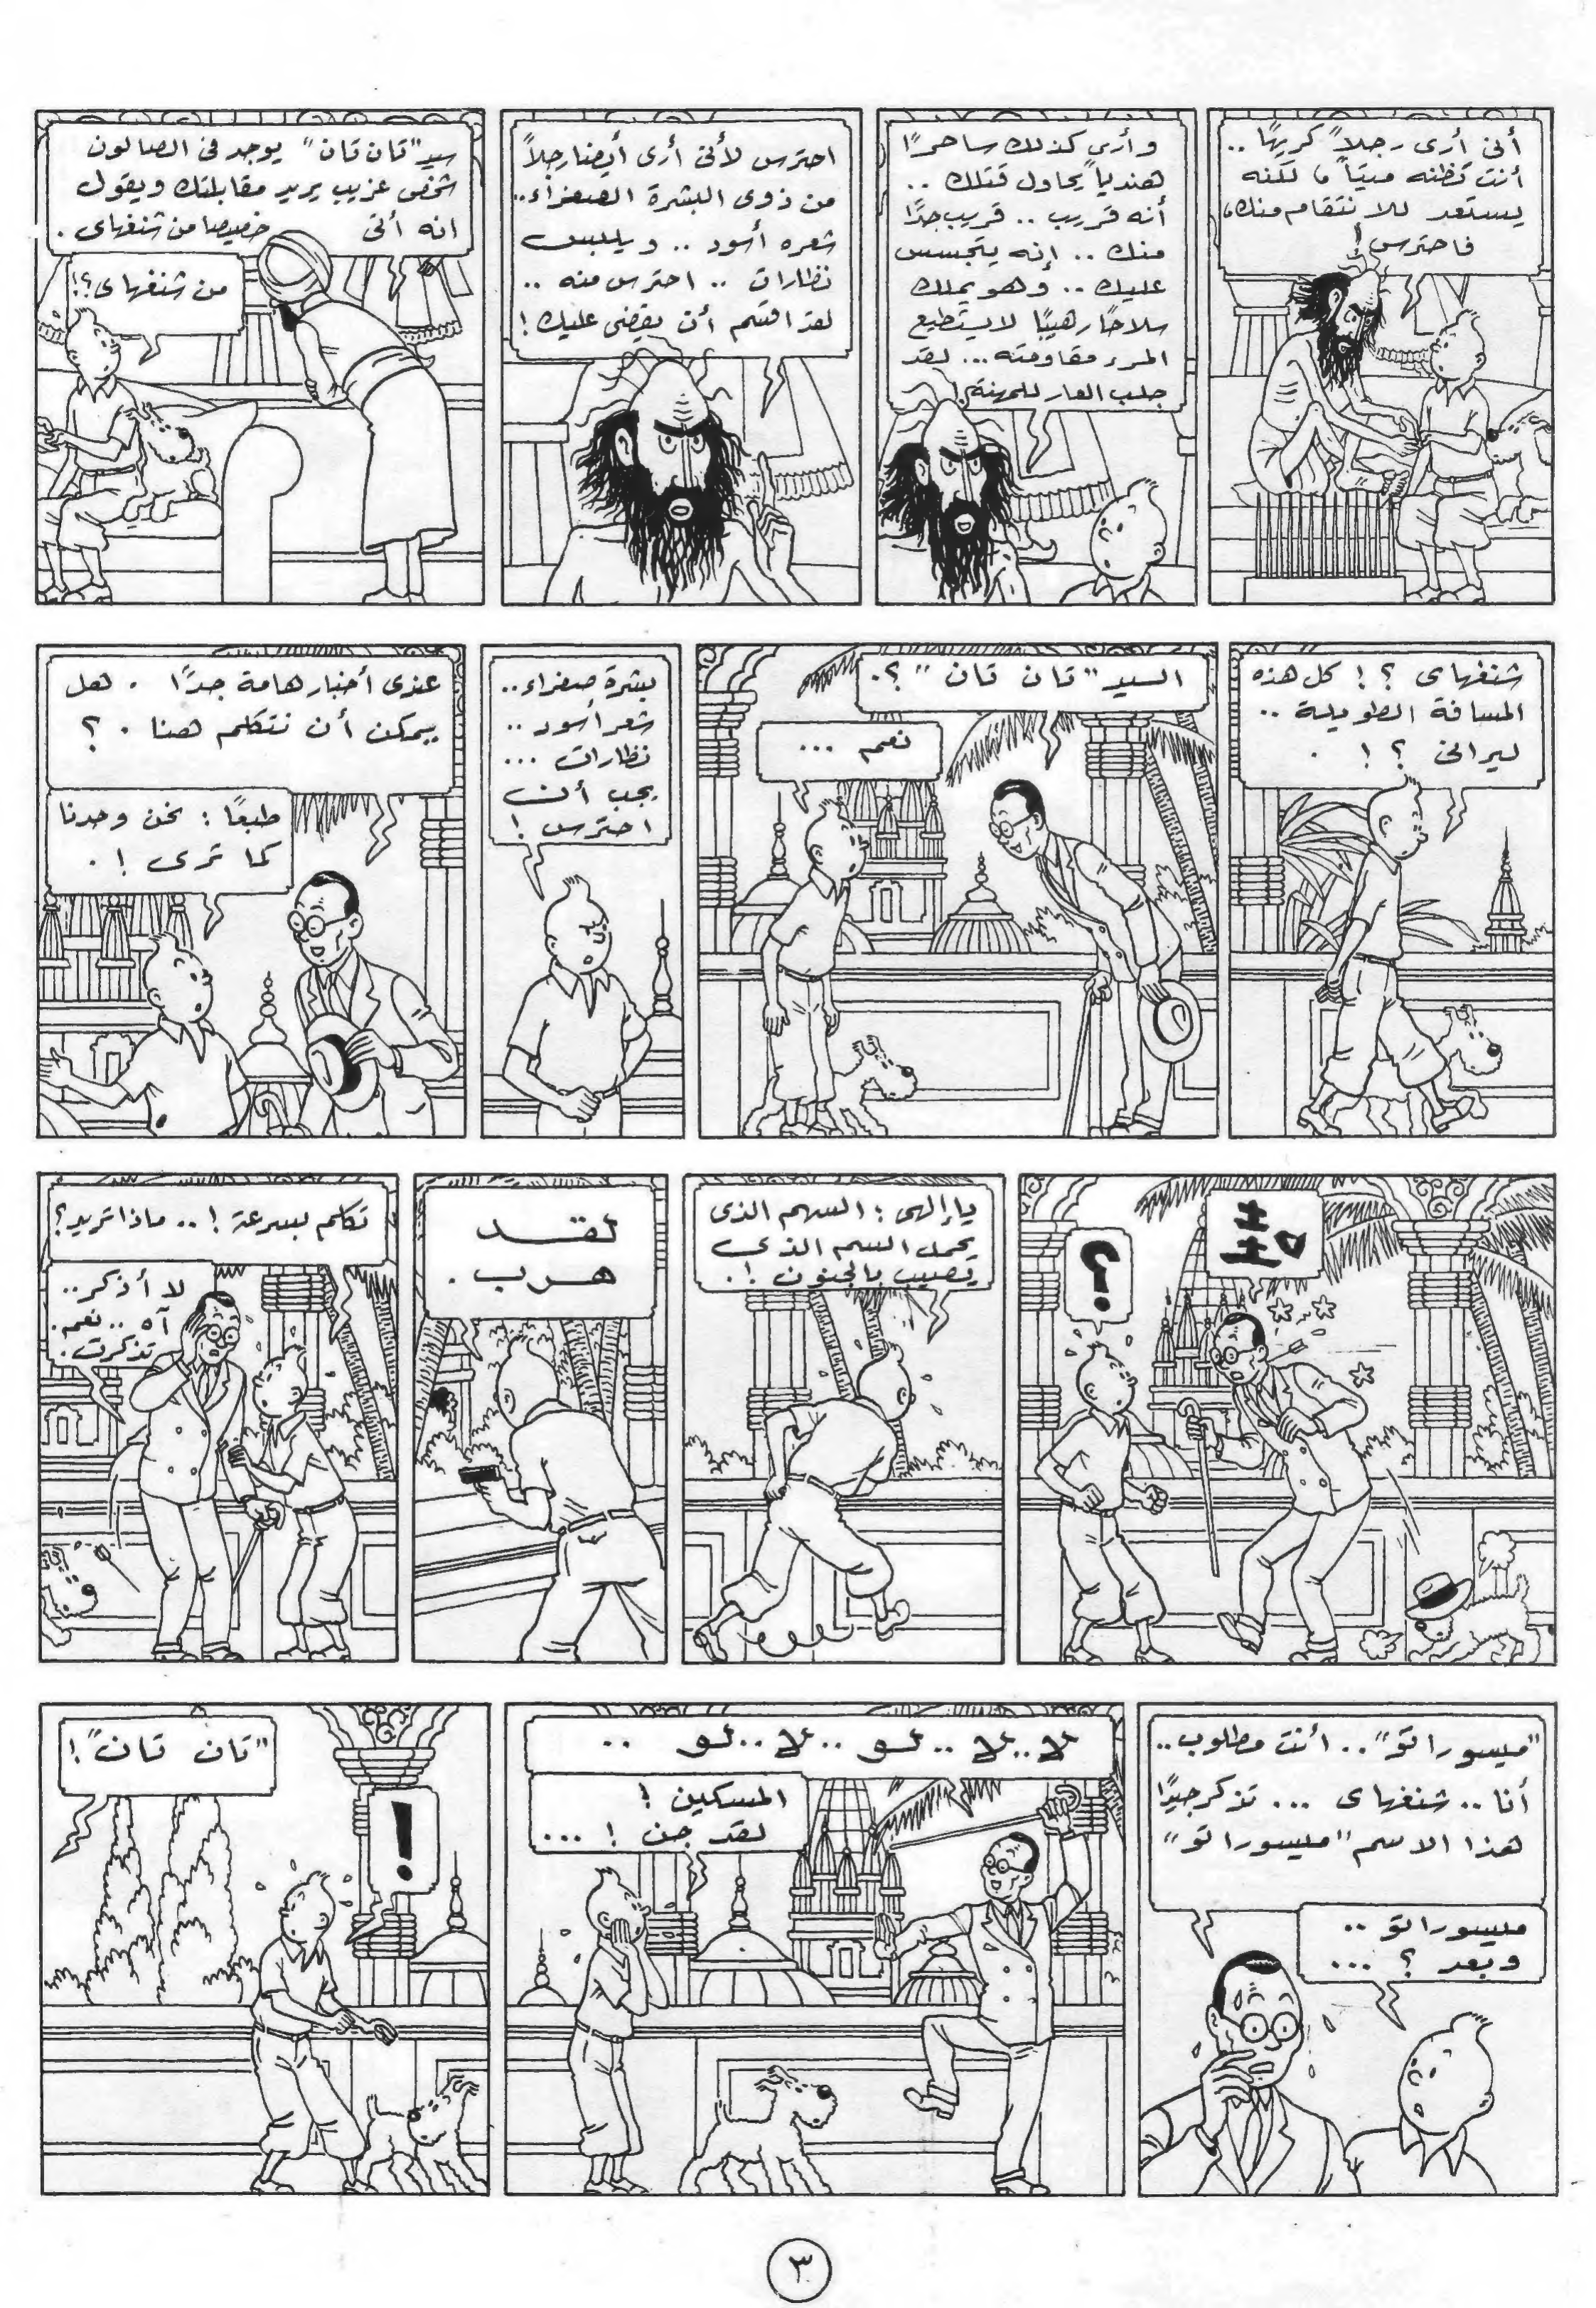 أنى أرى رجلاً كريهًا ..
أنت تظنه ميتاً ، لكنه
يستعد للانتقام منك،
فاحترس !
وأرى كذلك ساحرًا
هندياً يحاول قتلك ..
أنه قريب .. قريب جدًا
منك .. إنه يتجسس
عليك .. وهو يملك
سلاحًا رهيبًا لا يستطيع
المرء مقاومته ... لقد
جلب العار للمهنة !
احترس لأنى أرى أيضا رجلاً
من ذوى البشرة الصفراء ..
شعره أسود .. ويلبس
نظارات .. احترس منه ..
لقد اقسم أن يقضى عليك !
سيد "تان تان" يوجد فى الصالون
شخص غريب يريد مقابلتك ويقول
انه أتى خصيصا من شنغهاى .
من شنغهاى ؟!
شنغهاى ؟! كل هذه
المسافة الطويلة ..
ليرانى ؟! .
السيد "تان تان" ؟.
نعم ...
بشرة صفراء ..
شعر أسود ..
نظارات ...
يجب أن
احترس !
عندى أخبار هامة جدًا . هل
يمكن أن نتكلم هنا . ؟
طبعًا : نحن وحدنا
كما ترى ! .
؟
يا إلهى : السهم الذى
يحمل السم الذى
يصيب بالجنون !.
لقد
هرب .
تكلم بسرعة ! .. ماذا تريد ؟
لا أذكر ..
آه .. نعم .
تذكرت .
"ميسوراتو" .. أنت مطلوب ..
أنا .. شنغهاى ... تذكر جيدًا
هذا الاسم "ميسوراتو"
ميسوراتو ..
وبعد ؟ ...
لا .. لا .. لو .. لا .. لو ..
المسكين !
لقد جن ! ...
"تان تان" !
!
٣